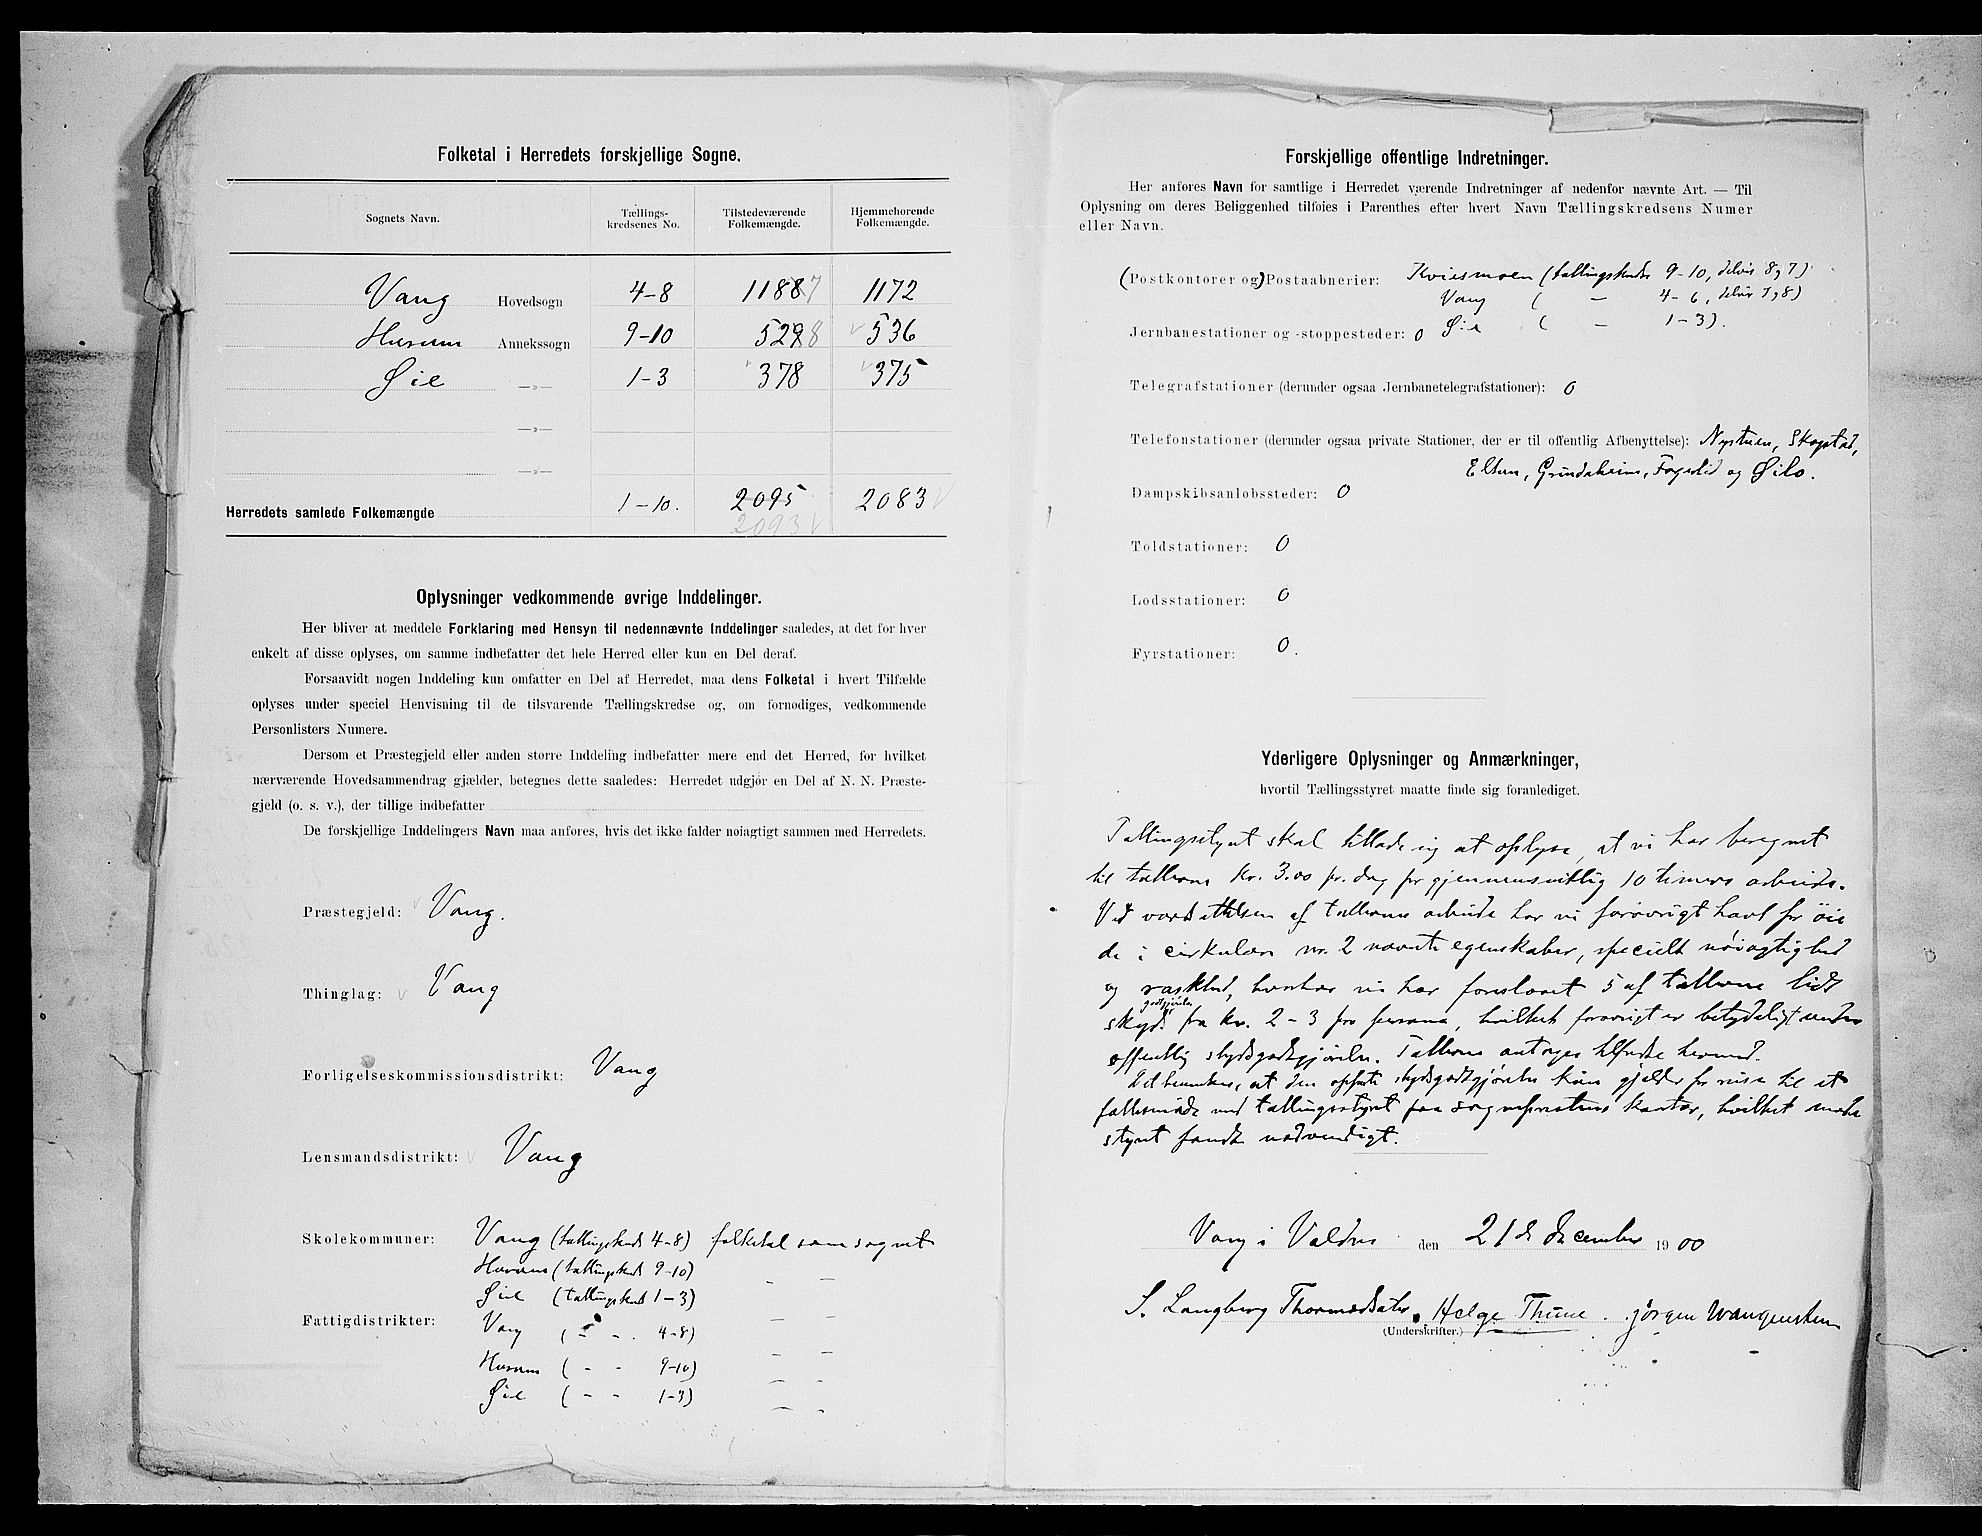 Folketal i Herredets forskjellige Sogne.
Sognets Navn.
Tællings-
kredsenes No.
Tilstedeværende
Folkemængde.
Hjemmehørende
Folkemængde.
Vang Hovedsogn 4-8 1188 7 1172
Hurum Annekssogn 9-10 529 8 536
Øie —»— 1-3 378 375
—»—
—»—
Herredets samlede Folkemængde 1-10. 2095 2083
2093
Oplysninger vedkommende øvrige Inddelinger.
Her bliver at meddele Forklaring med Hensyn til nedennævnte Inddelinger saaledes, at det for hver
enkelt af disse oplyses, om samme indbefatter det hele Herred eller kun en Del deraf.
Forsaavidt nogen Inddeling kun omfatter en Del af Herredet, maa dens Folketal i hvert Tilfælde
oplyses under speciel Henvisning til de tilsvarende Tællingskredse og, om fornødiges, vedkommende
Personlisters Numere.
Dersom et Præstegjeld eller anden større Inddeling indbefatter mere end det Herred, for hvilket
nærværende Hovedsammendrag gjælder, betegnes dette saaledes: Herredet udgjør en Del af N. N. Præste-
gjeld (o. s. v.), der tillige indbefatter
De forskjellige Inddelingers Navn maa anføres, hvis det ikke falder nøiagtigt sammen med Herredets.
Præstegjeld: Vang.
Thinglag: Vang
Forligelseskommissionsdistrikt: Vang
Lensmandsdistrikt: Vang
Skolekommuner: Vang (tællingskreds 4-8) folketal som sognet
Hurum (tællingskreds 9-10) - -
Øie (tællingskreds 1-3) - -
Fattigdistrikter: Vang ( - - . 4-8) - -
Hurum ( - - 9-10) - -
Øie ( - - 1-3) - -
Forskjellige offentlige Indretninger.
Her anføres Navn for samtlige i Herredet værende Indretninger af nedenfor nævnte Art. — Til
Oplysning om deres Beliggenhed tilføies i Parenthes efter hvert Navn Tællingskredsens Numer
eller Navn.
(Postkontorer og) Postaabnerier: Kviesmoen (tællingskreds 9-10, delvis 8, 7)
Vang ( - 4-6, delvis 7, 8)
Jernbanestationer og -stoppesteder: 0 Øie ( - 1-3).
Telegrafstationer (derunder ogsaa Jernbanetelegrafstationer): 0
Telefonstationer (derunder ogsaa private Stationer, der er til offentlig Afbenyttelse): Nystuen, Skogstad,
Eltun, Grindaheim, Fagerlid og Øilo.
Dampskibsanløbssteder: 0
Toldstationer: 0
Lodsstationer: 0
Fyrstationer: 0.
Yderligere Oplysninger og Anmærkninger,
hvortil Tællingsstyret maatte finde sig foranlediget.
Tællingsstyret skal tillade sig at oplyse, at vi har beregnet
til tællerne kr. 3.00 pr. dag for gjennemsnitlig 10 timers arbeide.
Ved værdsættelsen af tællernes arbeide har vi forøvrigt havt for öie
de i cirkulære nr. 2 nævnte egenskaber, specielt nöiagtighed
og raskhed, hvorhos vi har foreslaaet 5 af tællerne lidt
skydsgodtgjörelse fra kr. 2-3 pro persona, hvilket forøvrigt er betydeligt under
offentlig skydsgodtgjörelse. Tællerne antages tilfredse hermed.
Det bemerkes, at den opförte skydsgodtgjörelse kun gjælder for reise til et
fællesmöde med tællingsstyret paa sogneprestens kontor, hvilket möde
styret fandt nödvendigt.
Vang i Valdres den 21de december 1900
S. Langberg Thormodsæter. Helge Thune. Jörgen Wangensteen
(Underskrifter.)